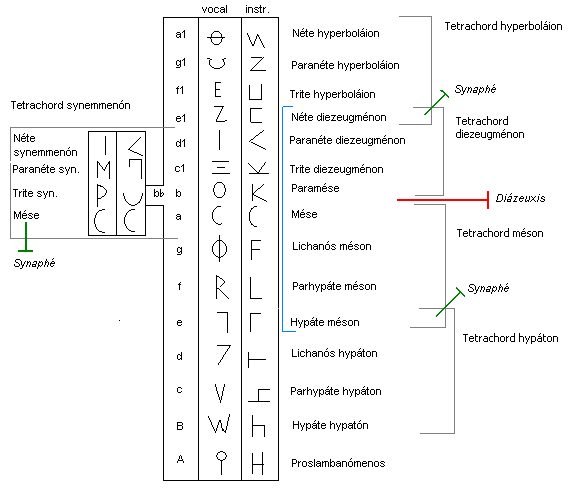 vocal instr.
a1 Néte hyperboláion
Tetrachord hyperboláion
g1 Paranéte hyperboláion
f1 Trite hyperboláion
Synaphé
e1 Néte diezeugménon
Tetrachord
diezeugménon
d1 Paranéte diezeugménon
c1 Trite diezeugménon
b Paramése
Diázeuxis
a Mése
g Lichanós méson
Tetrachord méson
f Parhypáte méson
Synaphé
e Hypáte méson
Tetrachord hypáton
d Lichanós hypáton
c Parhypáte hypáton
B Hypáte hypatón
A Proslambanómenos
Tetrachord synemmenón
Néte
synemmenón
Paranéte syn.
Trite syn.
bb
Mése
Synaphé